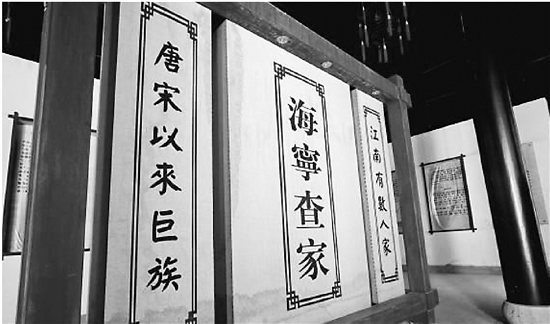 唐宋以來巨族
海寧查家
江南有數人家